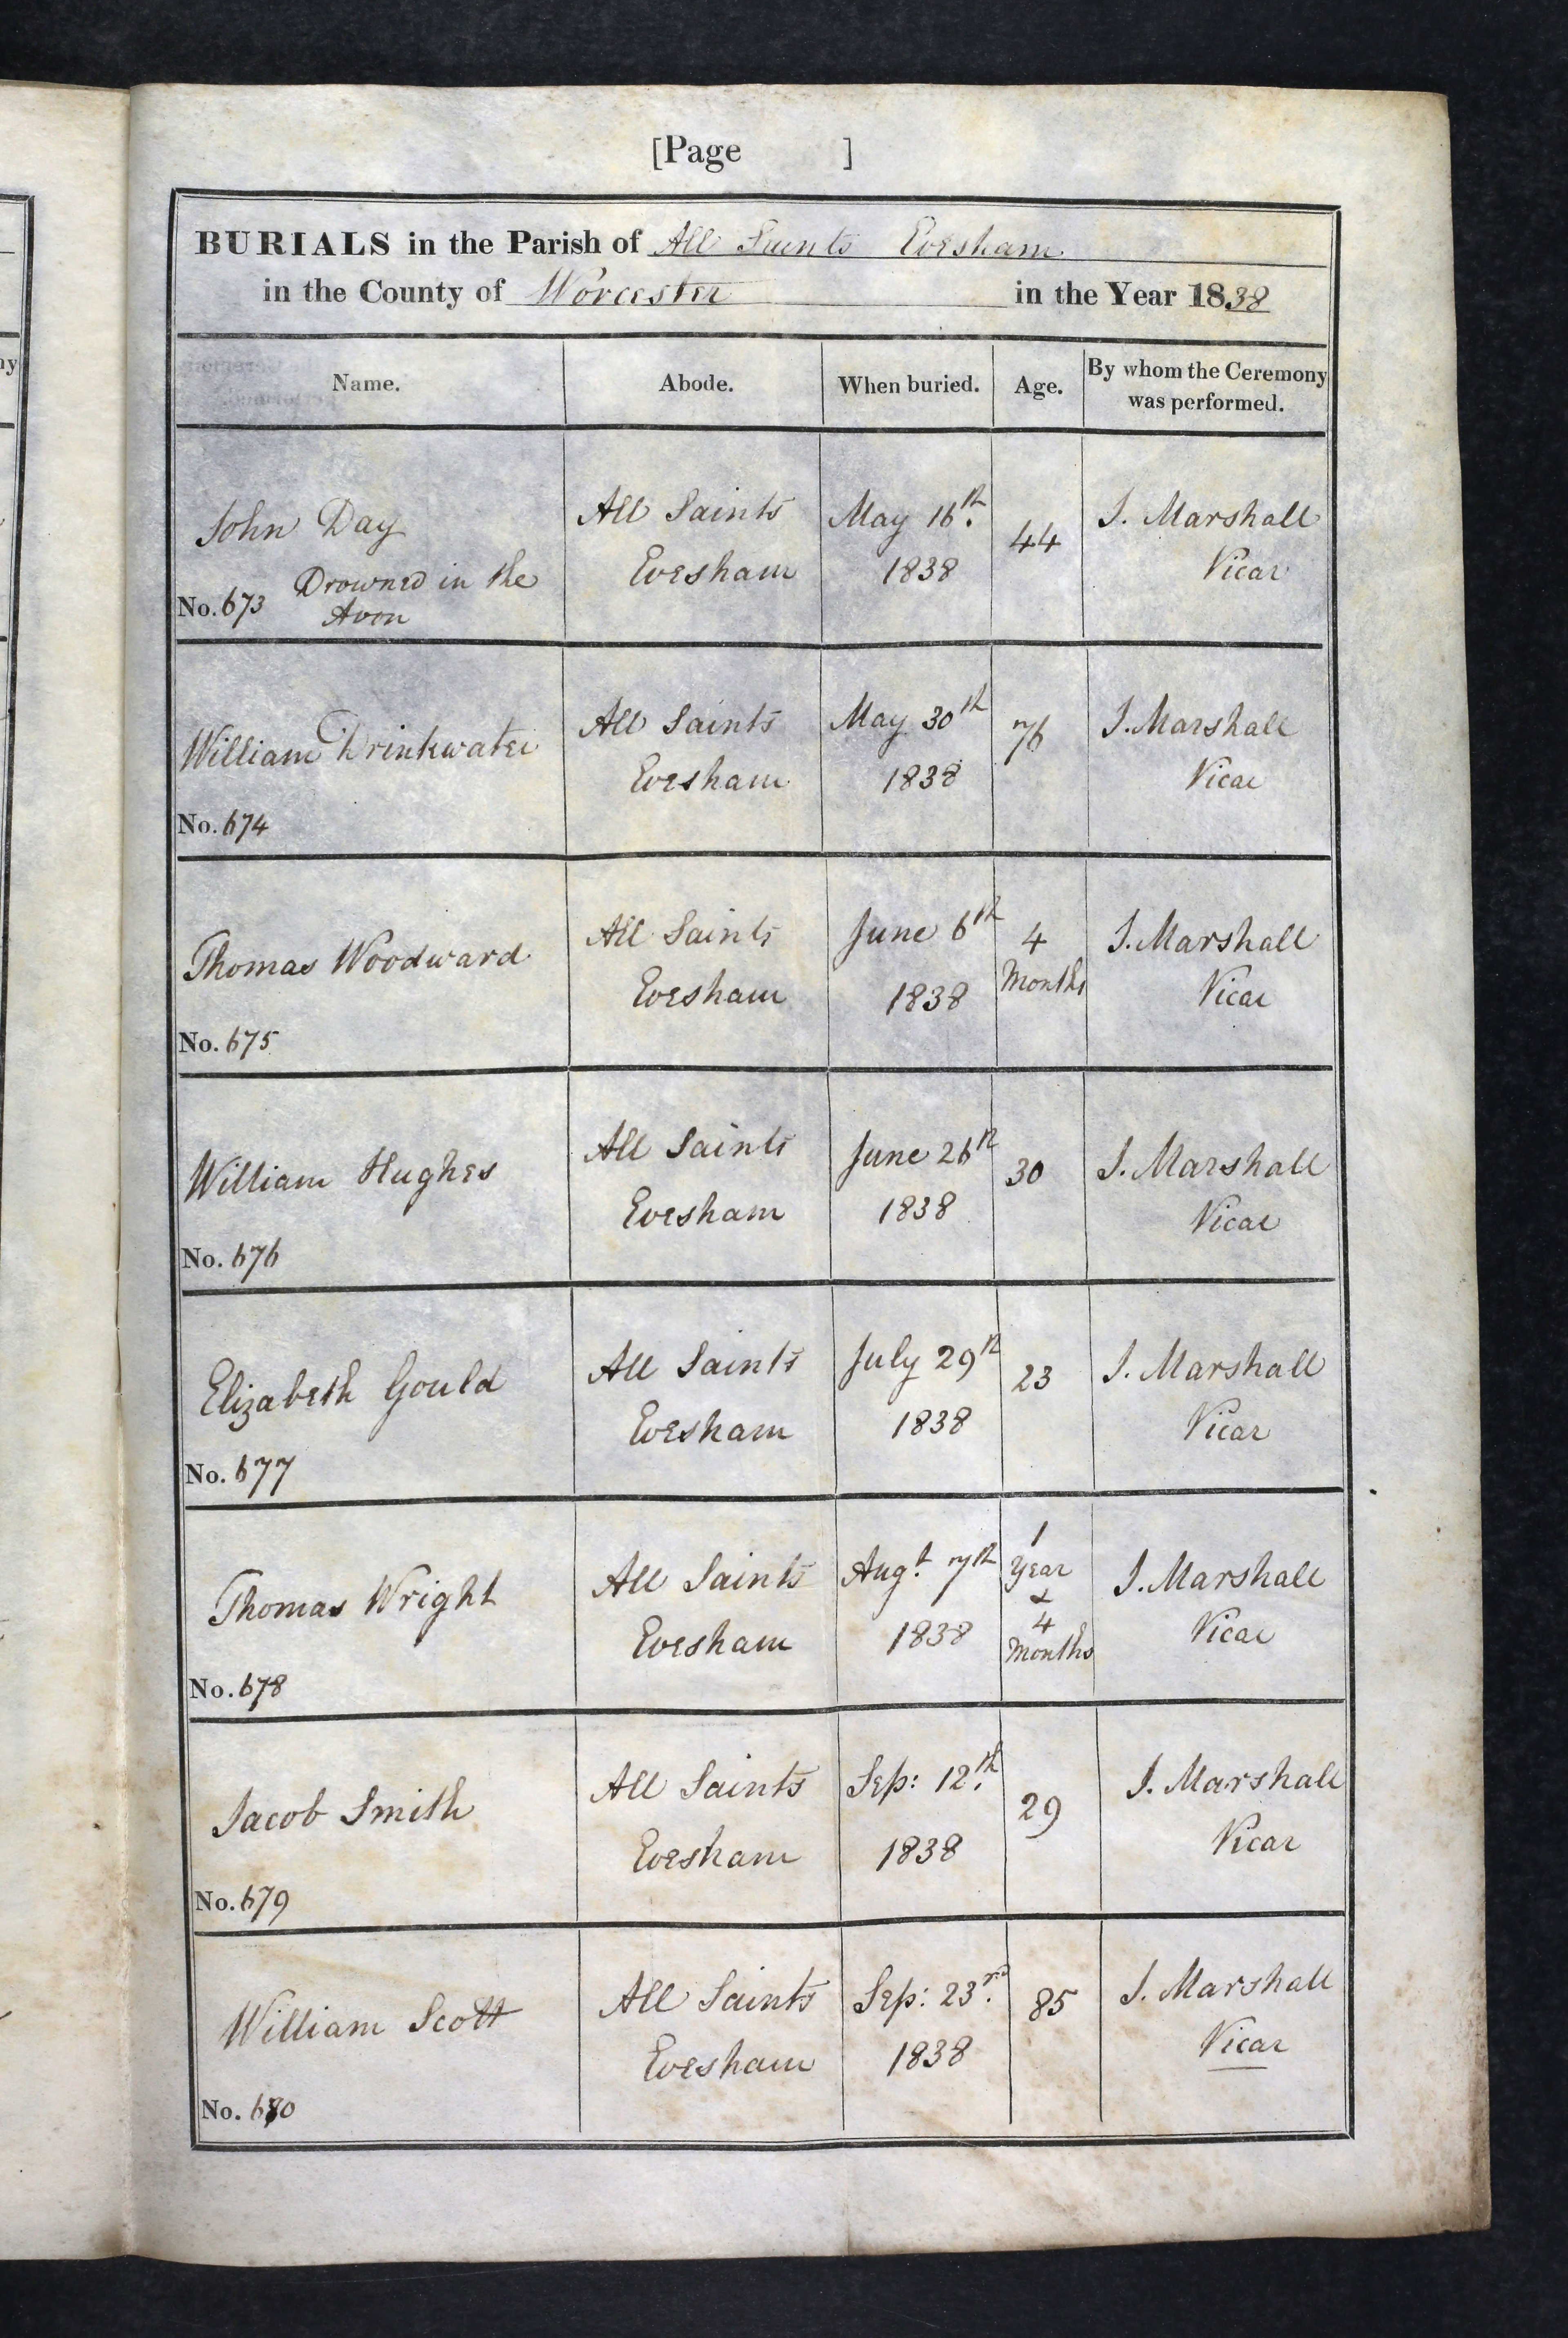 [Page ]
BURIALS in the Parish of All Saints Evesham
in the County of Worcester in the Year 1838
Name. Abode. When buried. Age. By whom the Ceremony was performed.
John Day
Drowned in the
Avon
No. 673
All Saints
Evesham
May 16th
1838
44
J. Marshall
Vicar
William Drinkwater
No. 674
All Saints
Evesham
May 30th
1838
76
J. Marshall
Vicar
Thomas Woodward
No. 675
All Saints
Evesham
June 6th
1838
4
Months
J. Marshall
Vicar
William Hughes
No. 676
All Saints
Evesham
June 26th
1838
30
J. Marshall
Vicar
Elizabeth Gould
No. 677
All Saints
Evesham
July 29th
1838
23
J. Marshall
Vicar
Thomas Wright
No. 678
All Saints
Evesham
Augt. 7th
1838
1
Year
&
4
Months
J. Marshall
Vicar
Jacob Smith
No. 679
All Saints
Evesham
Sep: 12th
1838
29
J. Marshall
Vicar
William Scott
No. 680
All Saints
Evesham
Sep: 23rd
1838
85
J. Marshall
Vicar